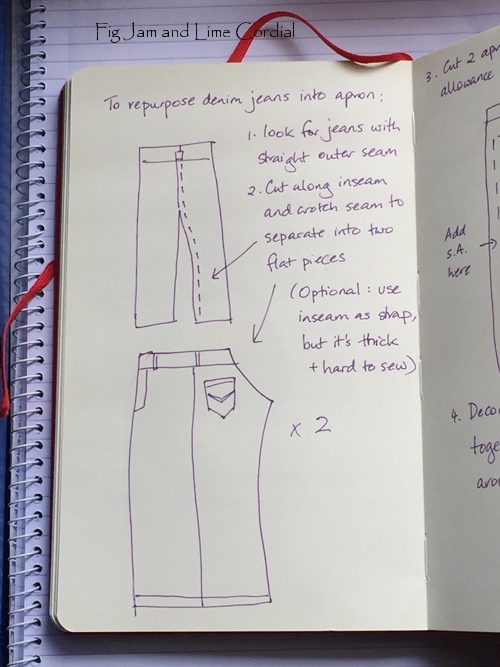 Fig Jam and Lime Cordial
To repurpose denim jeans into apron:
1. look for jeans with
straight outer seam
2. Cut along inseam
and crotch seam to
separate into two
flat pieces
(Optional: use
inseam as strap,
but it's thick
+ hard to sew)
x 2
3. Cut 2 apr
allowance
Add
S.A.
here
4. Deco
toge
arou